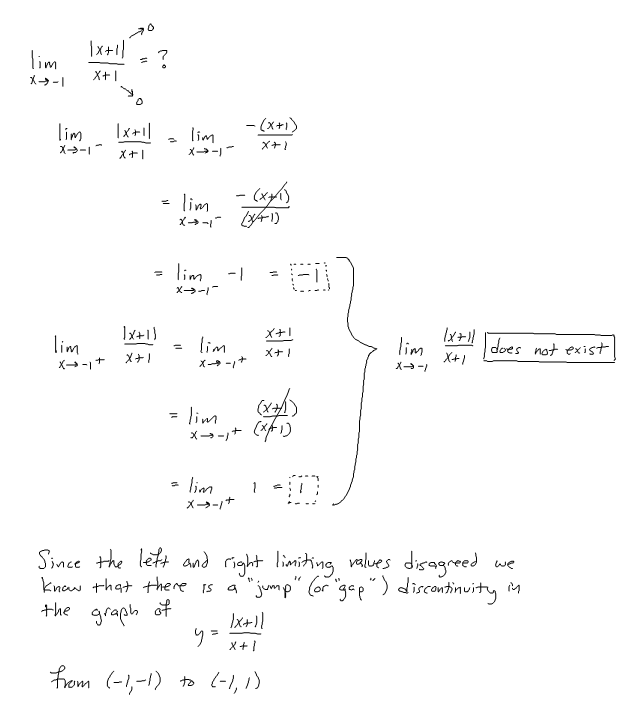 lim x→-1 |x+1| / x+1 = ?
→0
→0
lim x→-1⁻ |x+1| / x+1 = lim x→-1⁻ -(x+1) / x+1
= lim x→-1⁻ -(x+1) / (x+1)
= lim x→-1⁻ -1 = -1
lim x→-1⁺ |x+1| / x+1 = lim x→-1⁺ x+1 / x+1
lim x→-1 |x+1| / x+1 does not exist
= lim x→-1⁺ (x+1) / (x+1)
= lim x→-1⁺ 1 = 1
Since the left and right limiting values disagreed we
know that there is a "jump" (or "gap") discontinuity in
the graph of
y = |x+1| / x+1
from (-1,-1) to (-1, 1)